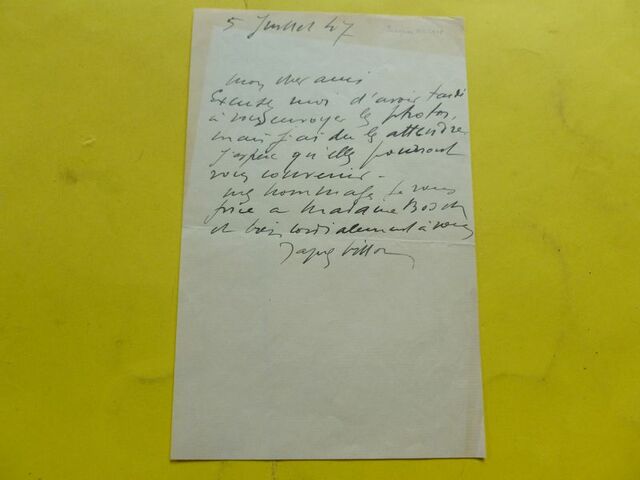 5 Juillet 47
mon cher ami
Excusez moi d'avoir tardé
à vous envoyer les photos,
mais j'ai du les attendre
j'espère qu'elles pourront
vous convenir -
mes hommages je vous
prie a Madame Bosch
et bien cordialement à vous
Jacques Villon